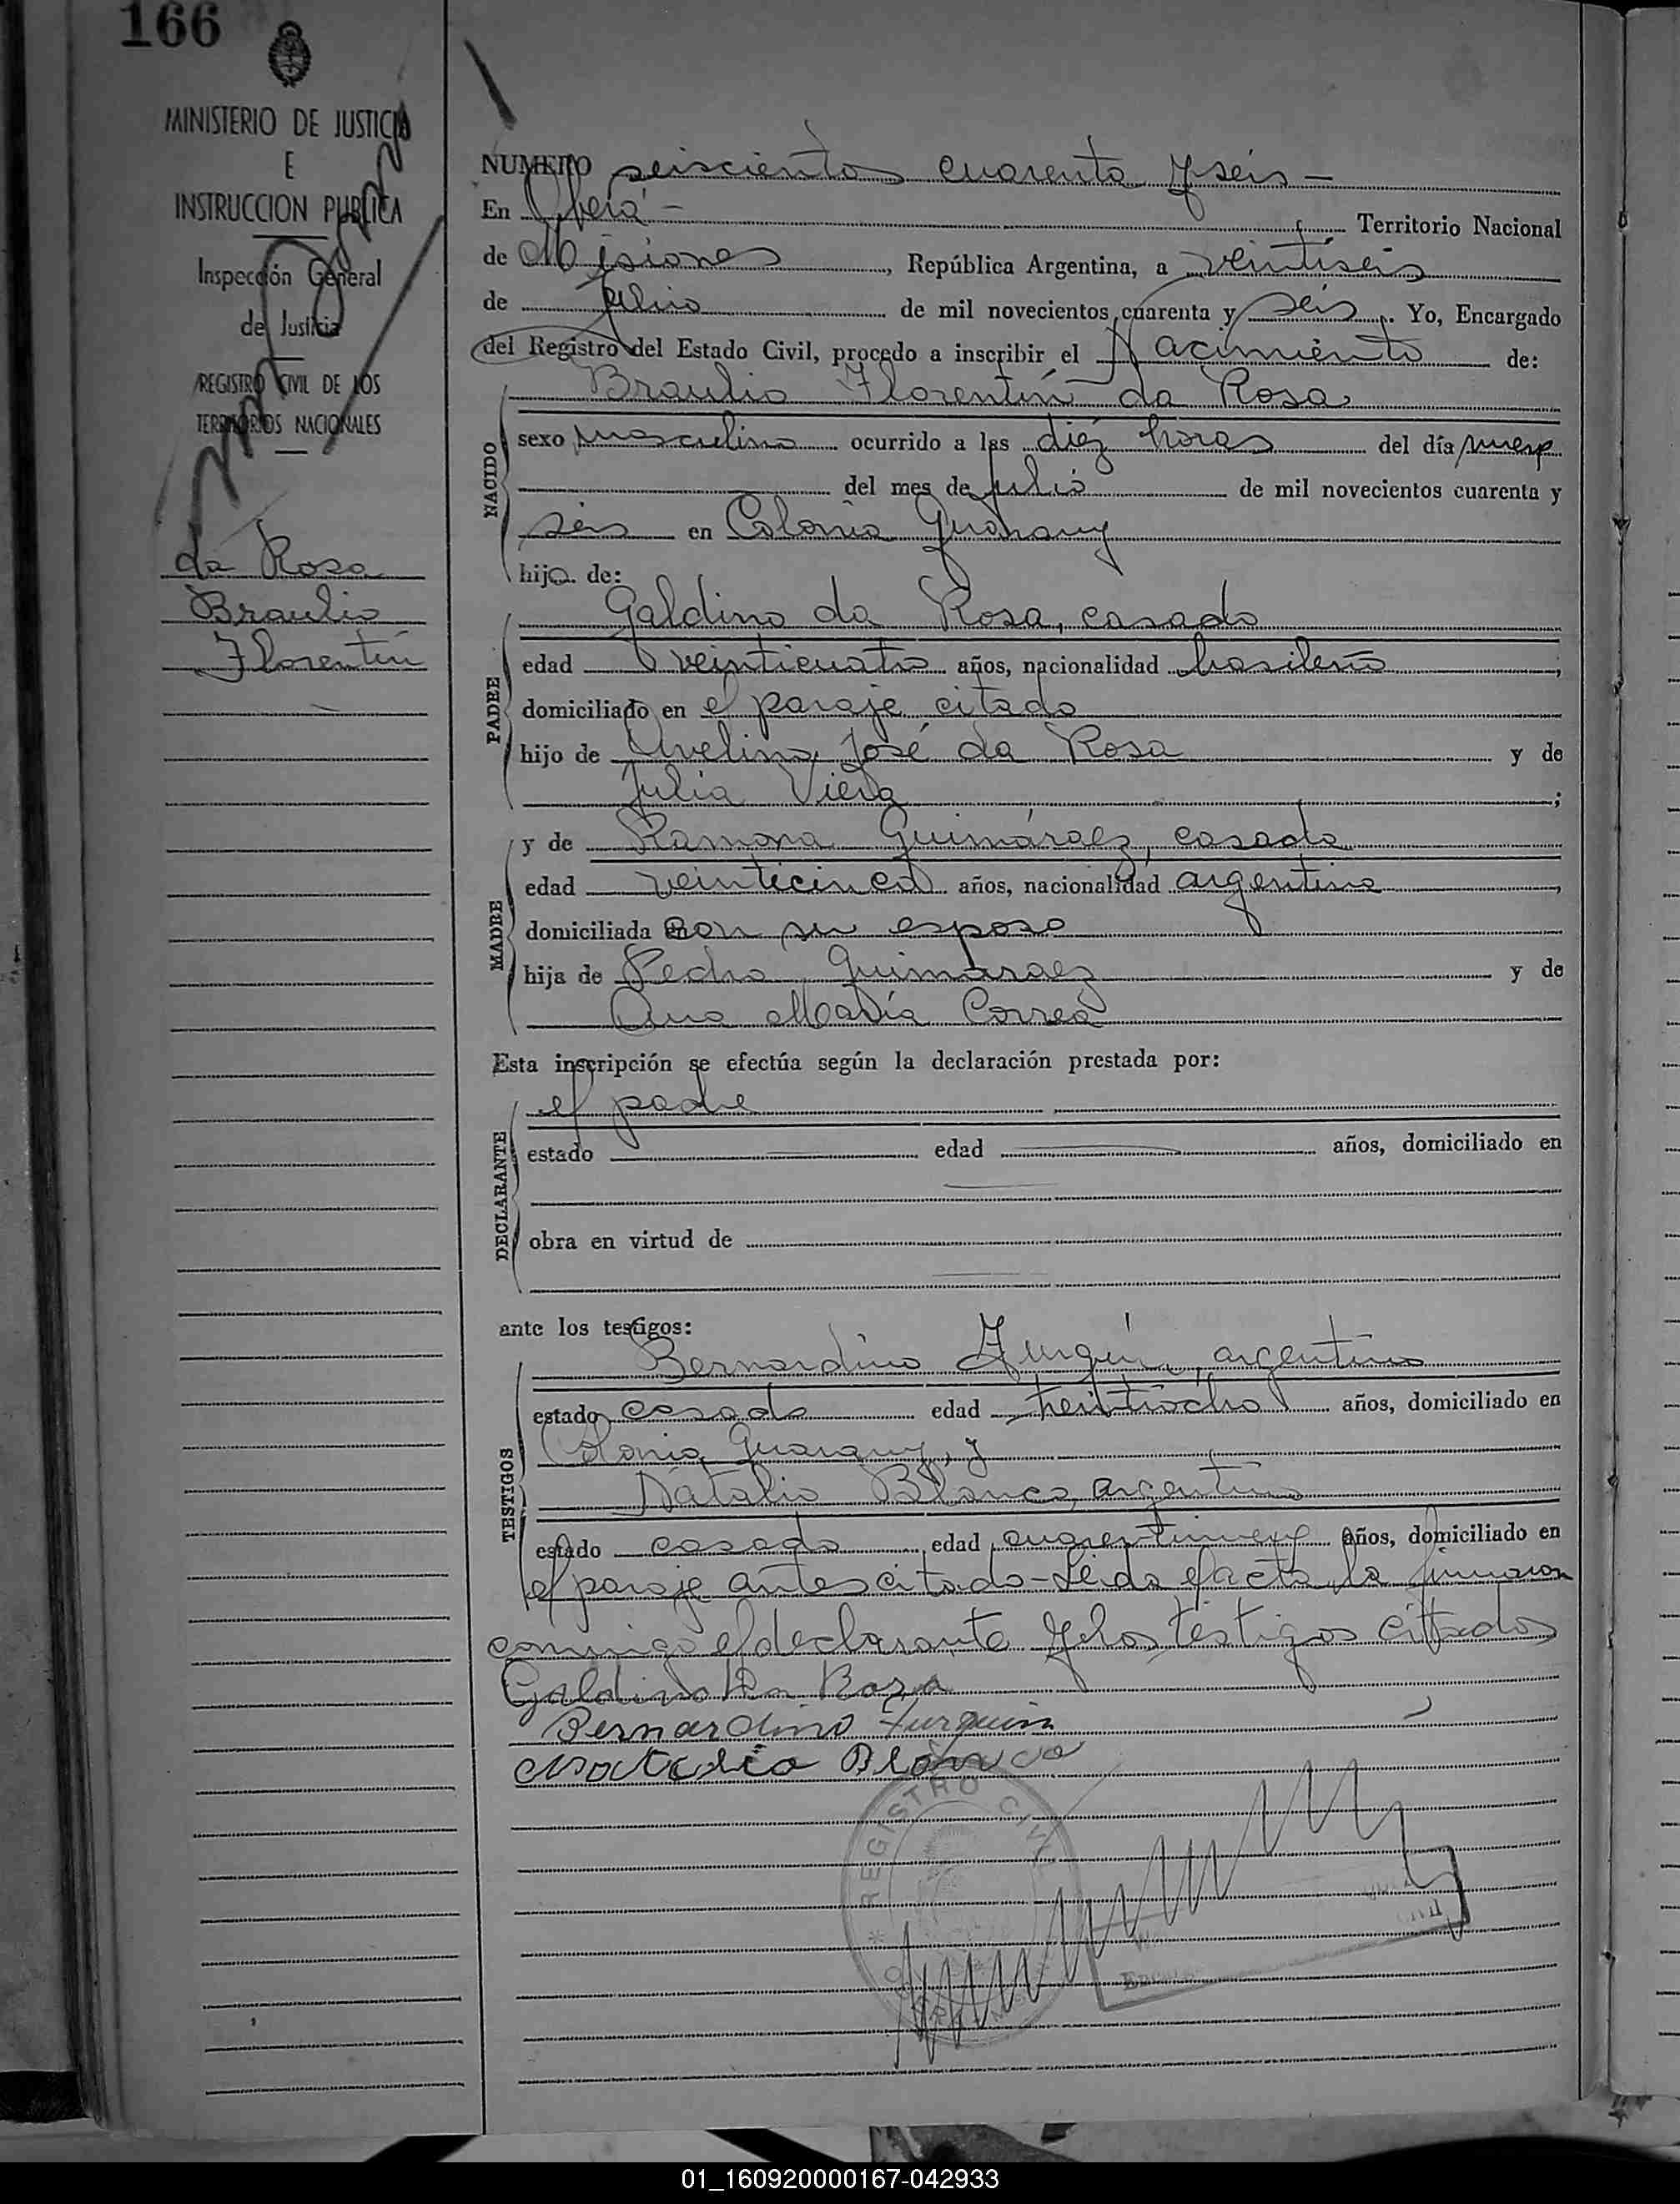 166
MINISTERIO DE JUSTICIA
E
INSTRUCCION PUBLICA
Inspección General
de Justicia
REGISTRO CIVIL DE LOS
TERRITORIOS NACIONALES
da Rosa
Braulio
Florentín
NUMERO seiscientos cuarenta y seis -
En Oberá - Territorio Nacional
de Misiones, República Argentina, a veintiseis
de Julio de mil novecientos cuarenta y seis. Yo, Encargado
del Registro del Estado Civil, procedo a inscribir el Nacimiento de:
Braulio Florentín da Rosa
NACIDO
sexo masculino ocurrido a las diez horas del día nueve
del mes de julio de mil novecientos cuarenta y
seis en Colonia Guarany
hijo de:
PADRE
Galdino da Rosa, casado
edad veinticuatro años, nacionalidad brasileño;
domiciliado en el paraje citado
hijo de Avelino José da Rosa y de
Julia Viera;
MADRE
y de Ramona Guimáraez, casada
edad veinticinco años, nacionalidad argentina,
domiciliada con su esposo
hija de Pedro Guimaraez y de
Ana María Correa
Esta inscripción se efectúa según la declaración prestada por:
DECLARANTE
el padre
estado edad años, domiciliado en
obra en virtud de
ante los testigos:
TESTIGOS
Bernardino Furquin, argentino
estado casado edad treintiocho años, domiciliado en
Colonia Guarany, y
Natalio Blanco, argentino
estado casado edad cuarentinueve años, domiciliado en
el paraje antes citado - Leida el acta, la firmaron
conmigo el declarante y los testigos citados
Galdino Da Rosa
Bernardino Furquim
Natalio Blanco
REGISTRO CIVIL
01_160920000167-042933